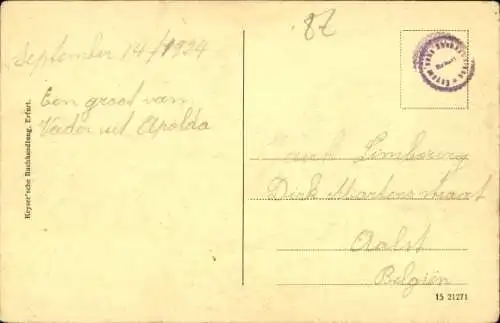 87
September 14/1924
Een groet van
Vader uit Apolda
Keyser'sche Buchhandlung, Erfurt.
Limbourg
Dirk Martensstraat
Aalst
Belgiën
15 21271